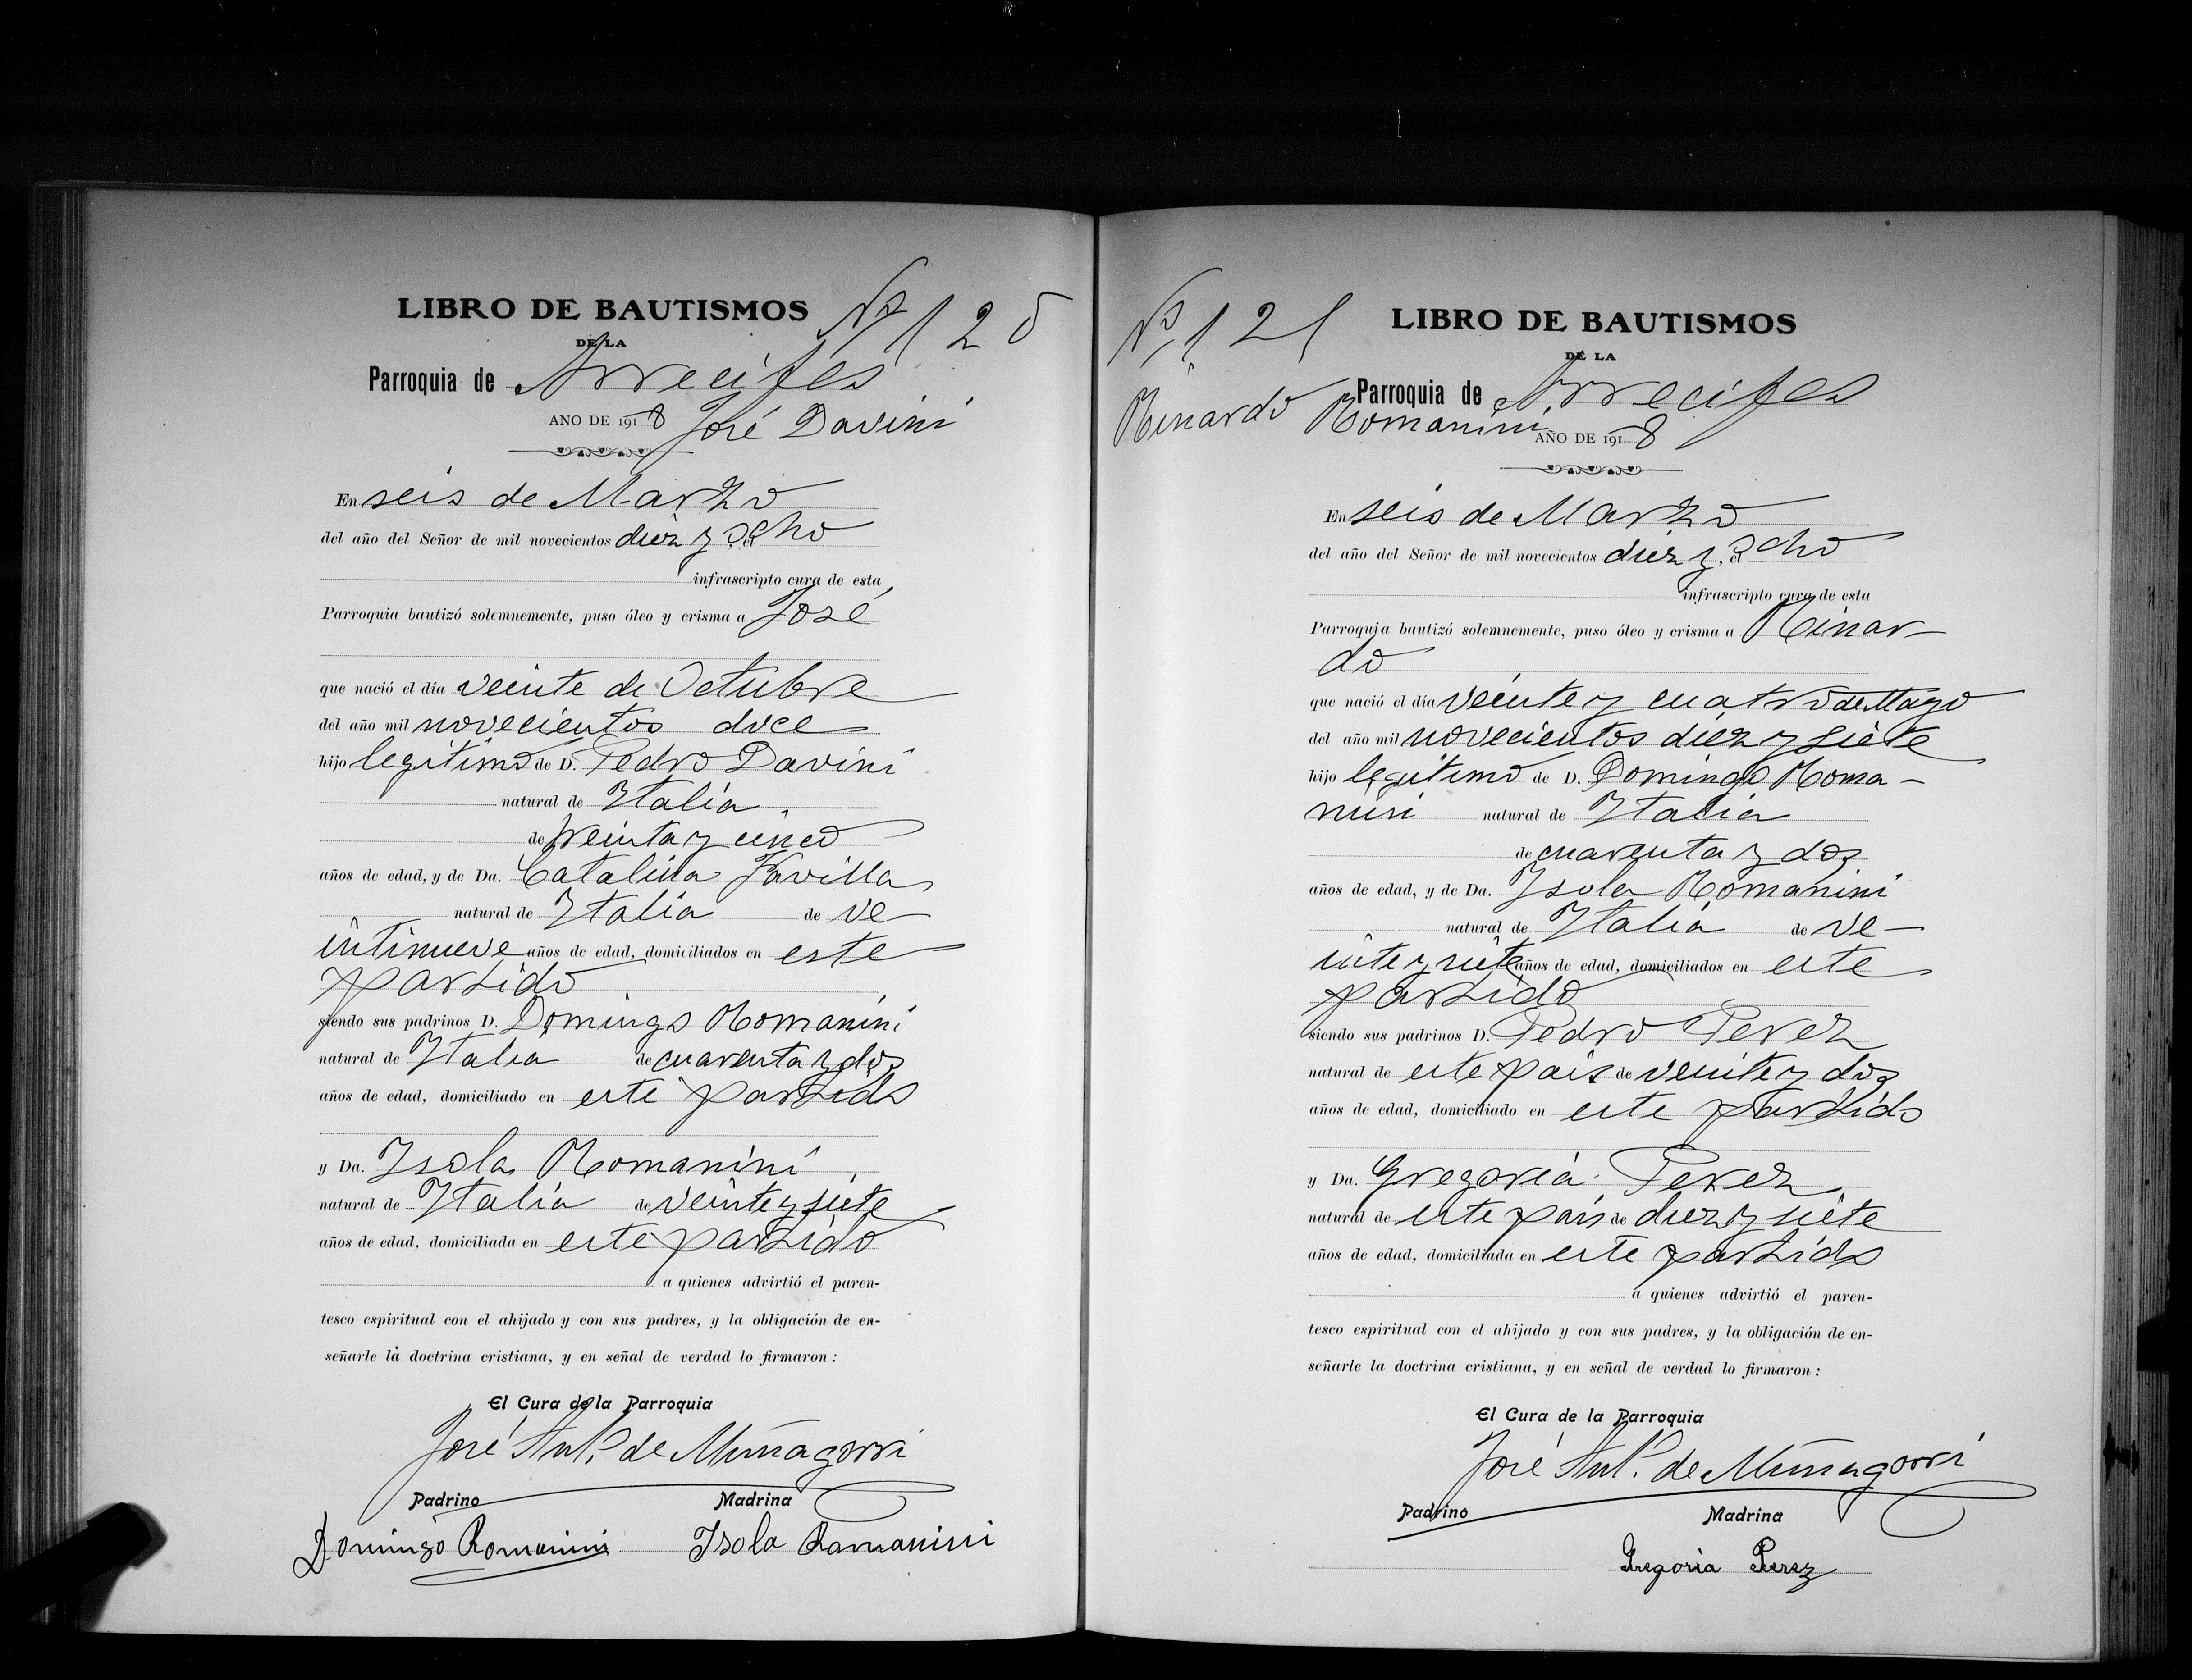 LIBRO DE BAUTISMOS Nº 120
DE LA
Parroquia de Arrecifes
AÑO DE 1918 José Davini
En seis de Marzo
del año del Señor de mil novecientos diez y ocho, el
infrascripto cura de esta
Parroquia bautizó solemnemente, puso óleo y crisma a José
que nació el día veinte de Octubre
del año mil novecientos doce
hijo legitimo de D. Pedro Davini
natural de Italia
de treinta y cinco
años de edad, y de Da. Catalina Favilla
natural de Italia de ve
intinueve años de edad, domiciliados en este
partido
siendo sus padrinos D. Domingo Romanini
natural de Italia de cuarenta y dos
años de edad, domiciliado en este partido
y Da. Isola Romanini
natural de Italia de veinte y siete
años de edad, domiciliada en este partido
a quienes advirtió el paren-
tesco espiritual con el ahijado y con sus padres, y la obligación de en-
señarle la doctrina cristiana, y en señal de verdad lo firmaron:
El Cura de la Parroquia
José Antº. de Munagorri
Padrino Madrina
Domingo Romanini Isola Romanini
Nº 121 LIBRO DE BAUTISMOS
DE LA
Parroquia de Arrecifes
Rinardo Romanini AÑO DE 1918
En seis de Marzo
del año del Señor de mil novecientos diez y ocho, el
infrascripto cura de esta
Parroquia bautizó solemnemente, puso óleo y crisma a Rinar-
do
que nació el día veinte y cuatro de Mayo
del año mil novecientos diez y siete
hijo legitimo de D. Domingo Roma-
nini natural de Italia
de cuarenta y dos
años de edad, y de Da. Isola Romanini
natural de Italia de ve-
inte y siete años de edad, domiciliados en este
partido
siendo sus padrinos D. Pedro Perez
natural de este pais de veinte y dos
años de edad, domiciliado en este partido
y Da. Gregoria Perez
natural de este pais de diez y siete
años de edad, domiciliada en este partido
a quienes advirtió el paren-
tesco espiritual con el ahijado y con sus padres, y la obligación de en-
señarle la doctrina cristiana, y en señal de verdad lo firmaron:
El Cura de la Parroquia
José Antº. de Munagorri
Padrino Madrina
Gregoria Perez